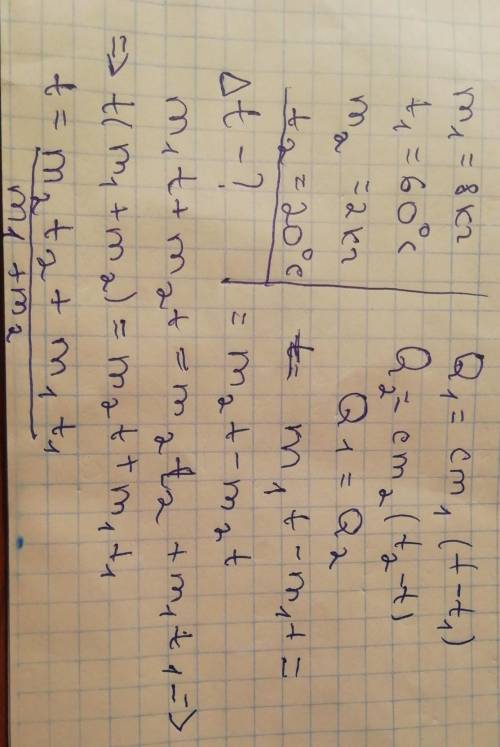 m₁ = 8кг
t₁ = 60°C
m₂ = 2кг
t₂ = 20°C
Δt - ?
Q₁ = cm₁ (t-t₁)
Q₂ = cm₂ (t₂-t)
Q₁ = Q₂
m₁ t - m₁ t =
= m₂ t - m₂ t
m₁ t + m₂ t = m₂ t₂ + m₁ t₁ =>
=> t(m₁ + m₂) = m₂ t + m₁ t₁
t = m₂ t₂ + m₁ t₁
m₁ + m₂